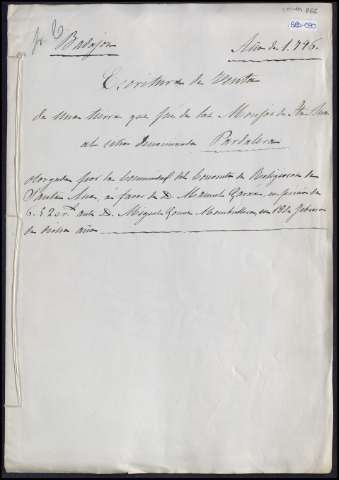 Badajoz Año de 1.796.
Escritura de Venta
de una tierra que fue de las Monjas de Sta. Ana
al sitio denominado Pardalera
otorgada por la Comunidad del Convento de Religiosas de
Santa Ana, a favor de D. Manuel García, en precio de
6.520 rs. ante D. Miguel en 18 de Febrero
de dicho año